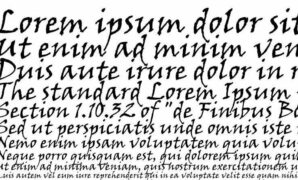 Lorem ipsum dolor sit
ut enim ad minim ven
Duis aute irure dolor in r
The standard Lorem Ipsum
Section 1.10.32 of "de Finibus B
Sed ut perspiciatis unde omnis iste
Nemo enim ipsam voluptatem quia volup
Neque porro quisquam est, qui dolorem ipsum
Ut enim ad minima veniam, quis nostrum exercitationem
Quis autem vel eum iure reprehenderit qui in ea voluptate velit esse quam nihil